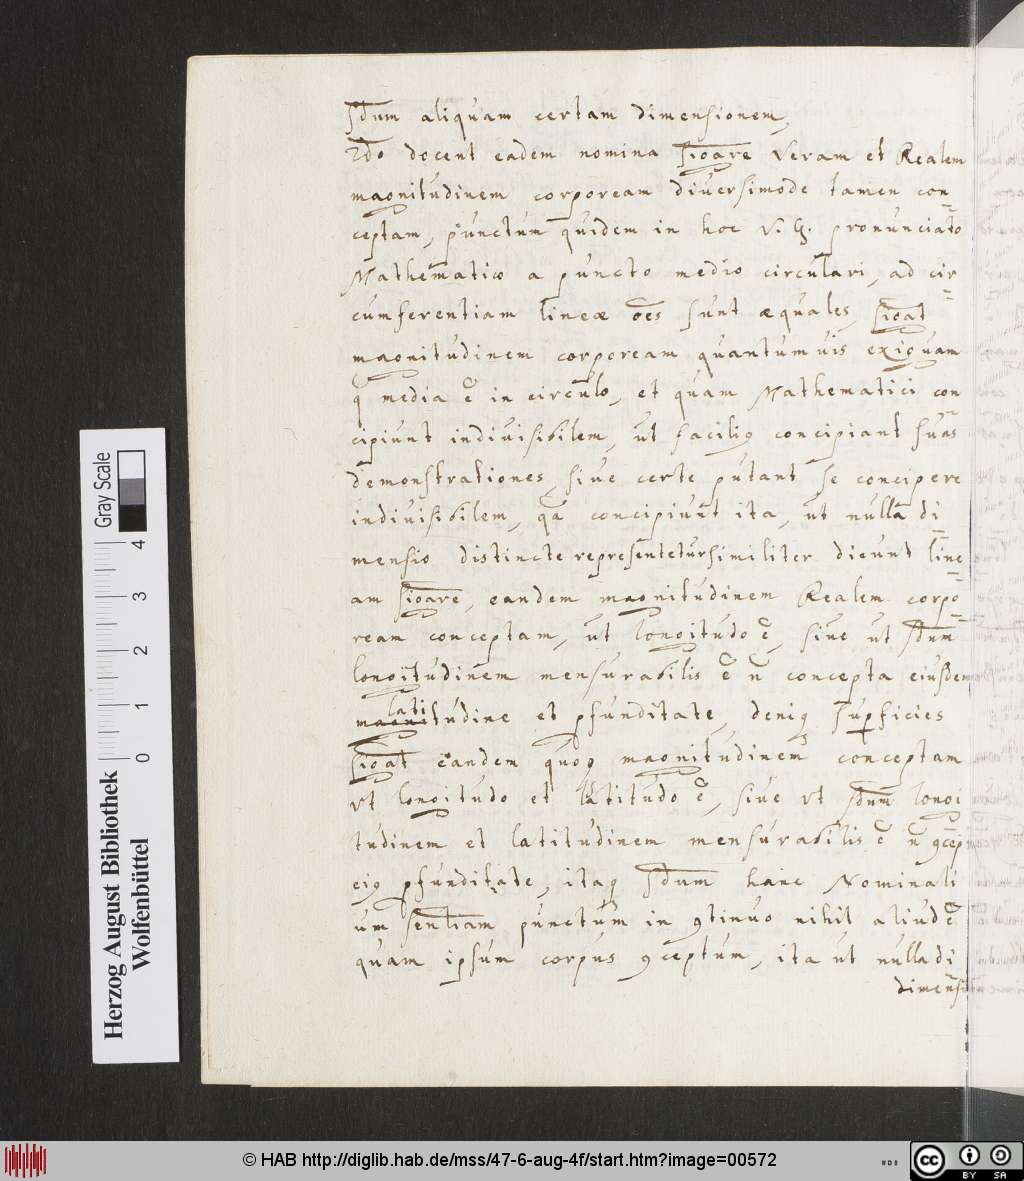 s̅dum aliquam certam dimensionem,
2do docent eadem nomina sigãre Veram et Realem
magnitudinem corpoream diuersimode tamen con=
ceptam, punctum quidem in hoc V. G. pronunciato
Mathematico a puncto medio circulari, ad cir=
cumferentiam lineæ oẽs sunt æquales, sigãt
magnitudinem corpoream quantumuis exiguam
q̃ media ẽ in circulo, et quam Mathematici con=
cipiunt indiuisibilem, ut faciliꝗ concipiant suas
demonstrationes, siue certe putant se concipere
indiuisibilem, qã concipiunt ita, ut nulla di=
mensio distincte representetur similiter dicunt line=
am sigãre, eandem magnitudinem Realem corpo=
ream conceptam, ut longitudo ẽ, siue ut s̅dum
longitudinem mensurabilis ẽ ñ concepta eiusdem
latitudine et pfunditate, deniq supficies
sigãt eandem quoq magnitudinem conceptam
vt longitudo et latitudo ẽ, siue vt s̅dum longi
tudinem et latitudinem mensurabilis ẽ ñ ꝯcep
eiꝗ pfunditate, itaq s̅dum hanc Nominali
um sententiam punctum in ꝯtinuo nihil aliud ẽ
quam ipsum corpus ꝯceptum, ita ut nulla di
dimensi
Gray Scale
0 1 2 3 4
Herzog August Bibliothek
Wolfenbüttel
© HAB http://diglib.hab.de/mss/47-6-aug-4f/start.htm?image=00572
cc BY SA